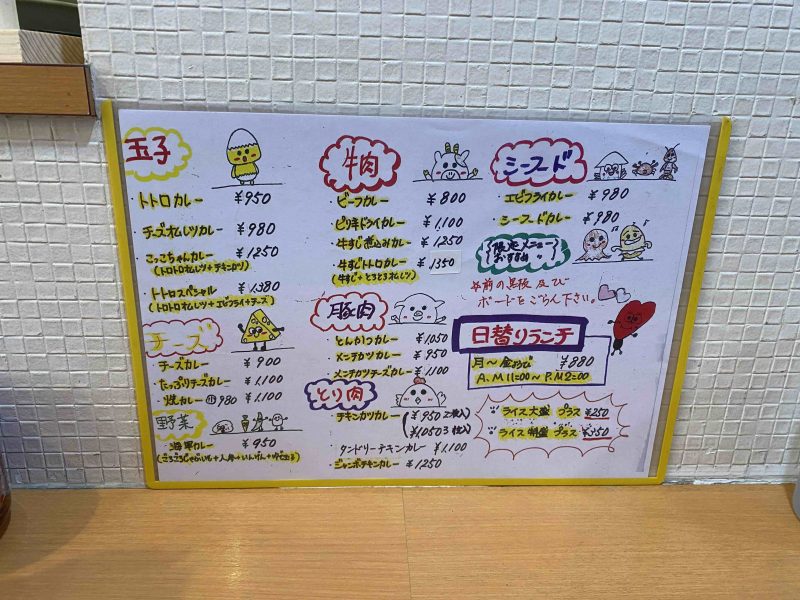 玉子
・トトロカレー ¥950
・チーズオムレツカレー ¥980
・こっこちゃんカレー ¥1250
(トロトロオムレツ+チキンカツ)
・トトロスペシャル ¥1,380
(トロトロオムレツ+エビフライ+チーズ)
チーズ
・チーズカレー ¥900
・たっぷりチーズカレー ¥1,100
・焼カレー 980 ¥1,100
野菜
・海軍カレー ¥950
牛肉
・ビーフカレー ¥800
・ピリ辛ドライカレー ¥1,100
・牛すじ煮込みカレー ¥1250
・牛すじトロカレー ¥1350
(牛すじ+とろとろオムレツ)
豚肉
・とんかつカレー ¥1050
・メンチカツカレー ¥950
・メンチカツチーズカレー ¥1,100
とり肉
チキンカツカレー (¥950 2枚入
¥1,050 3枚入)
・タンドリーチキンカレー ¥1,100
・ジャンボチキンカレー ¥1250
シーフード
・エビフライカレー ¥980
・シーフードカレー ¥980
限定メニュー
おすすめ
☆前の黒板及び
ボードをごらん下さい。
日替りランチ
月〜金 ¥880
A.M 11:00〜P.M 2:00
ライス大盛 プラス ¥250
ライス 盛 プラス